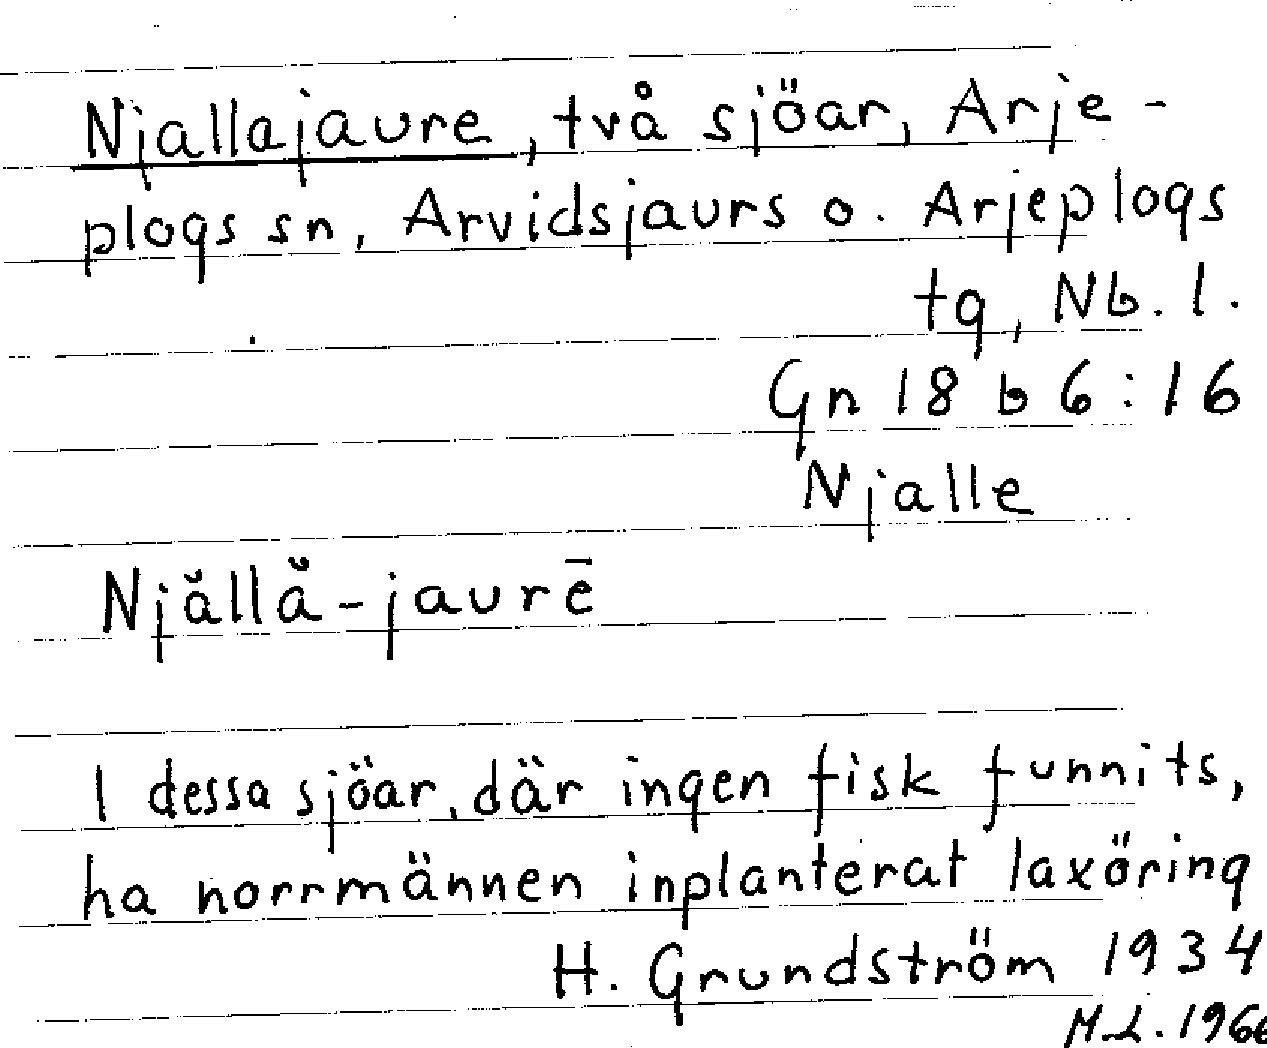 Njallajaure, två sjöar, Arje-
plogs sn, Arvidsjaurs o. Arjeplogs
tg, Nb. l.
Gn 18 b 6:16
Njalle
Njăllă-jaurē
I dessa sjöar, där ingen fisk funnits,
ha norrmännen inplanterat laxöring
H. Grundström 1934
M.L. 1966